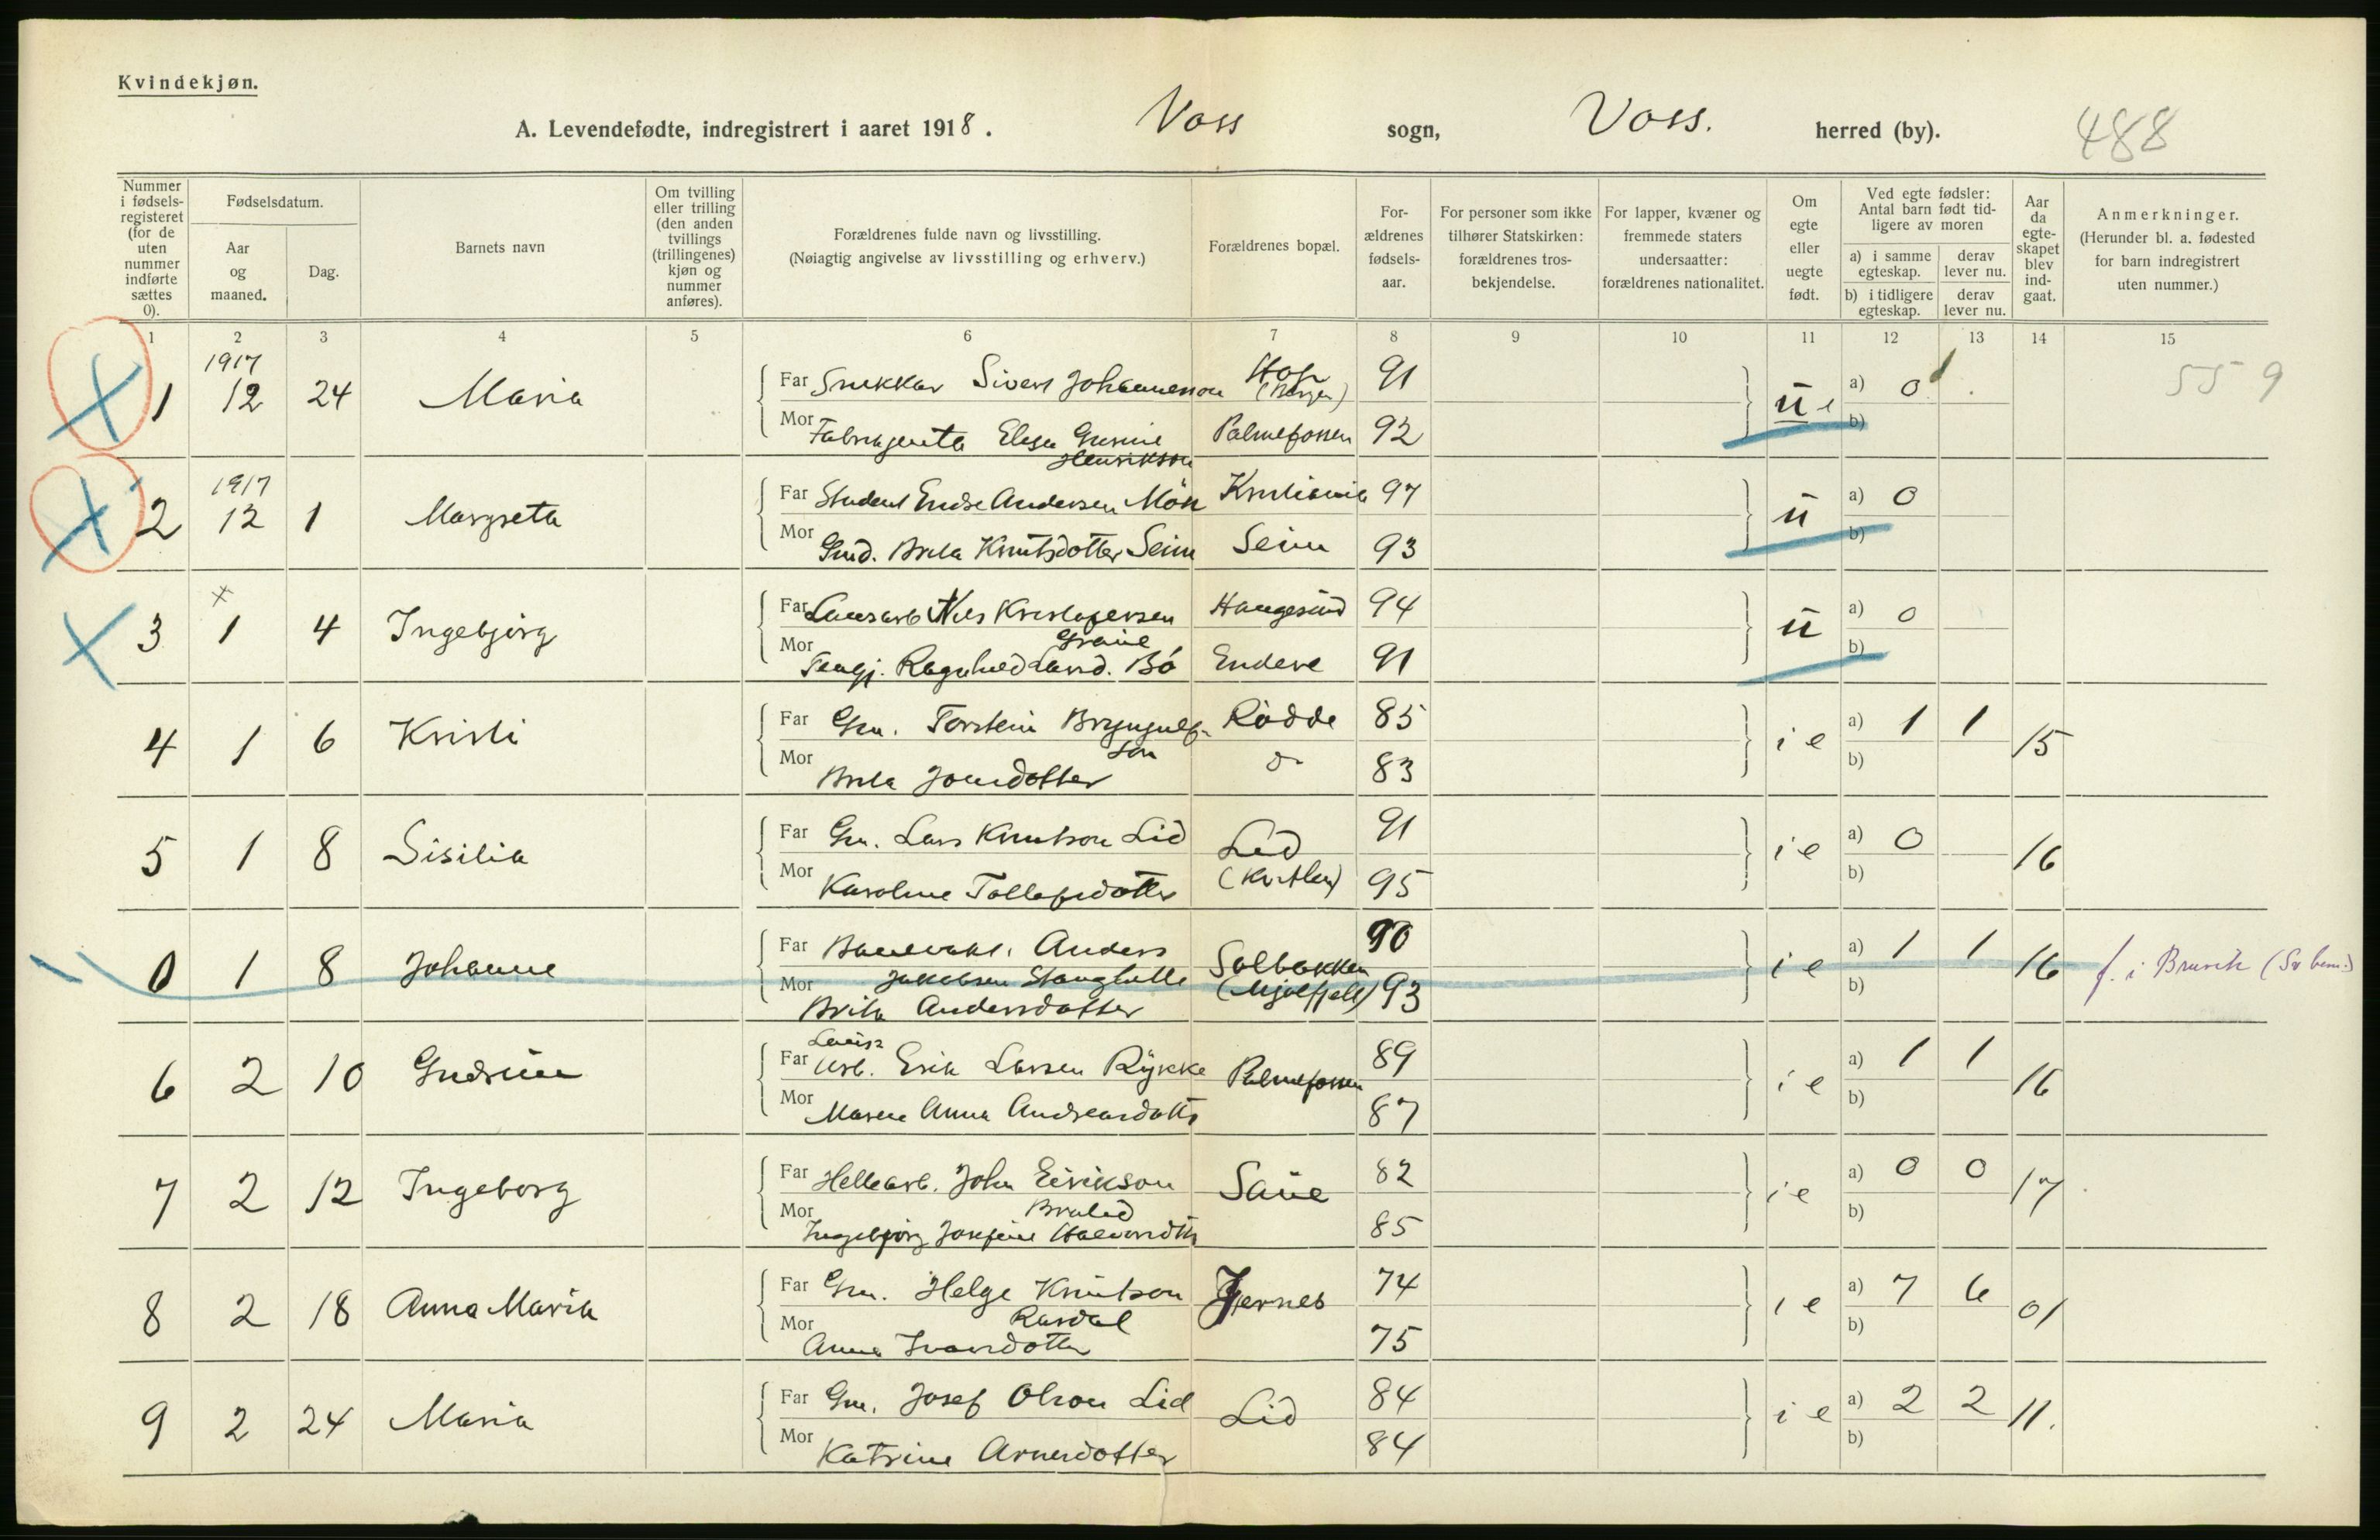 Kvindekjøn.
A. Levendefødte, indregistrert i aaret 1918. Voss sogn, Voss. herred (by). 488
Nummer i fødselsregisteret (for de uten nummer indførte sættes 0).
Fødselsdatum.
Aar og maaned.
Dag.
Barnets navn
Om tvilling eller trilling (den anden tvillings (trillingenes) kjøn og nummer anføres).
Forældrenes fulde navn og livsstilling.
(Nøiagtig angivelse av livsstilling og erhverv.)
Forældrenes bopæl.
Forældrenes fødselsaar.
For personer som ikke tilhører Statskirken: forældrenes trosbekjendelse.
For lapper, kvæner og fremmede staters undersaatter: forældrenes nationalitet.
Om egte eller uegte født.
Ved egte fødsler: Antal barn født tidligere av moren
a) i samme egteskap. derav lever nu.
b) i tidligere egteskap. derav lever nu.
Aar da egteskapet blev indgaat.
Anmerkninger.
(Herunder bl. a. fødested for barn indregistrert uten nummer.)
1 2 3 4 5 6 7 8 9 10 11 12 13 14 15
1917
1 12 24 Maria Far Snekkar Sivert Johannesson Hop (Bergen) 91 u e a) 0 559
Mor Fabrikgjenta Elesa Gurine Henrikson Palmefossen 92 b)
1917
2 12 1 Margreta Far Student Endre Andersen Møn Kristiania 97 u a) 0
Mor Gmd. Brita Knutsdotter Seim Seim 93 b)
3 1 4 Ingebjørg Far Lausarb Nils Kristofersen Haugesund 94 u a) 0
Mor Ragnhild Larsd. Bø Endeve 91 b)
4 1 6 Kristi Far Gm. Torstein Bryngulfson Rødde 85 i e a) 1 1 15
Mor Brita Jonsdotter do 83 b)
5 1 8 Sisilia Far Gm. Lars Knutson Lid Lid 91 i e a) 0 16
Mor Karoline Tollefsdotter 95 b)
0 1 8 Johanne Far Banevakt. Anders Jakobsen Stanghelle Solbakken (Mjølfjell) 90 i e a) 1 1 16 f. i Bruvik
Mor Brita Andersdotter 93 b)
6 2 10 Gudrun Far Lausarb. Erik Larsen Rykke Palmefossen 89 i e a) 1 1 16
Mor Maren Anna Andreasdotter 87 b)
7 2 12 Ingeborg Far Hellearb. John Eirikson Saue 82 i e a) 0 0 17
Mor Ingebjørg Josefine Halvorsdtr 85 b)
8 2 18 Anna Maria Far Gm. Helge Knutson Rasdal Gjernes 74 i e a) 7 6 01
Mor Anna Ivarsdotter 75 b)
9 2 24 Maria Far Gm. Josef Olson Lid Lid 84 i e a) 2 2 11.
Mor Katrine Arnesdotter 84 b)